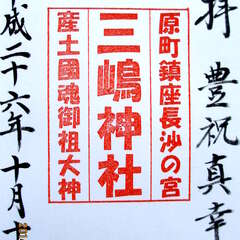 拝 豊祝真幸
原町鎮座長沙の宮
三嶋神社
産土國魂御祖大神
成二十六年十月十